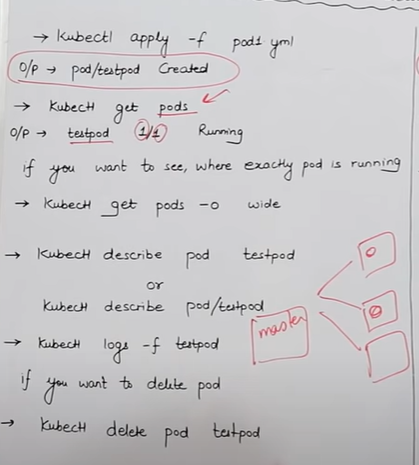 → Kubectl apply -f pod1 yml
O/P → pod/testpod Created
→ Kubectl get pods
O/P → testpod 1/1 Running
if you want to see, where exactly pod is running
→ Kubectl get pods -o wide
→ Kubectl describe pod testpod
or
Kubectl describe pod/testpod
master
→ Kubectl logs -f testpod
if you want to delete pod
→ Kubectl delete pod testpod